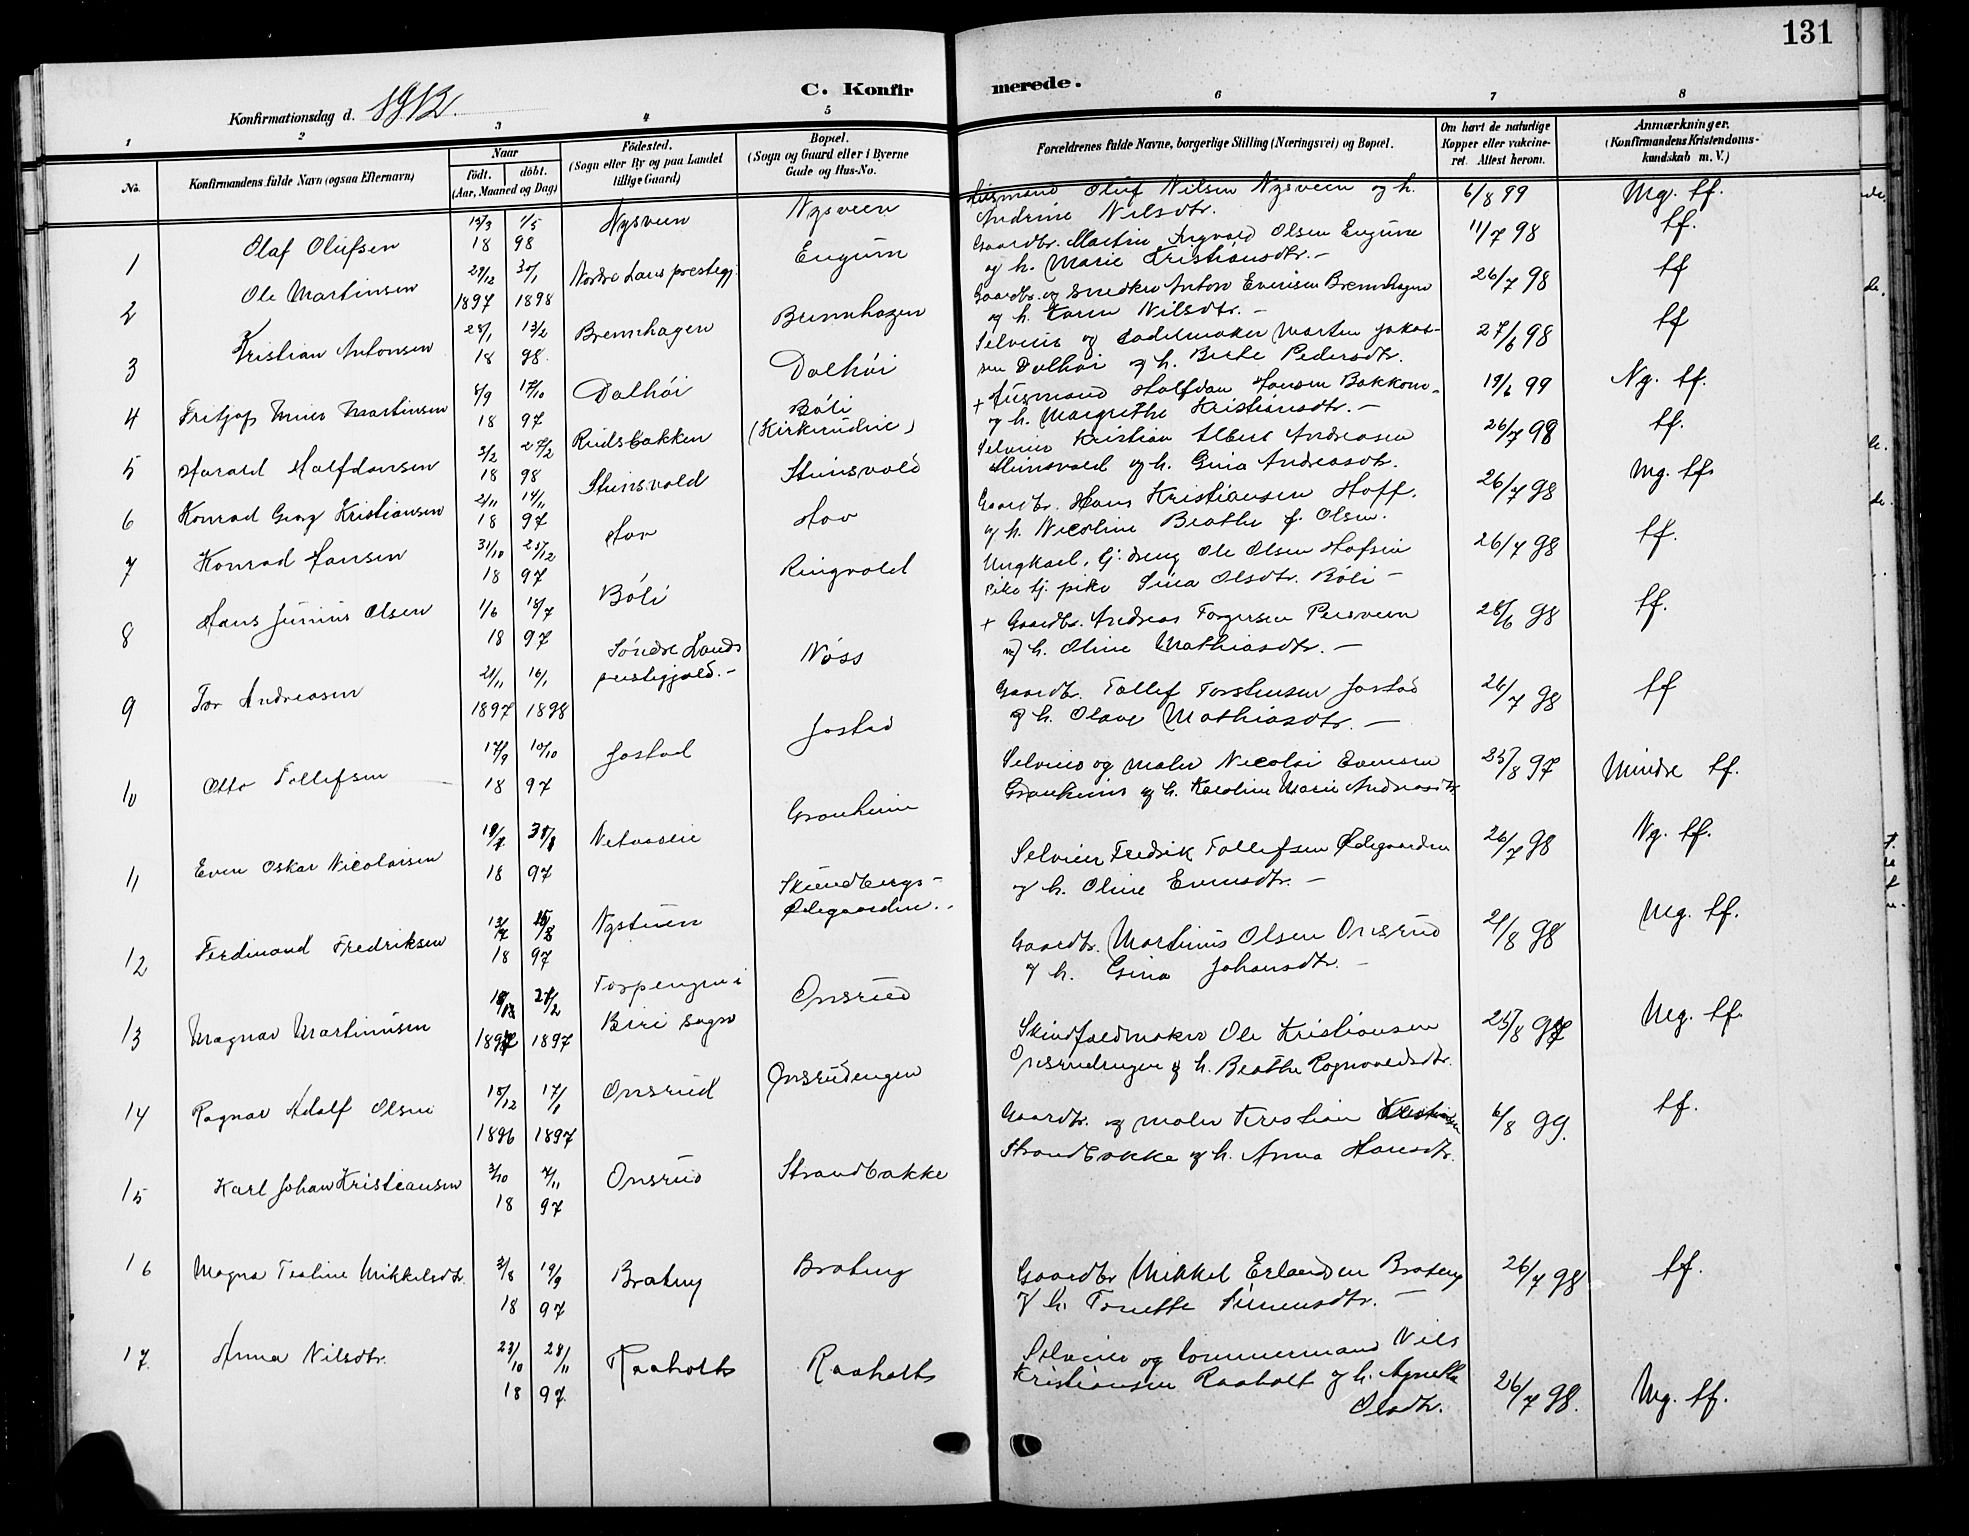 131
C. Konfirmerede.
Konfirmationsdag d. 1912.
1 2 3 4 5 6 7 8
No.
Konfirmandens fulde Navn (ogsaa Efternavn)
Naar
födt. döbt.
(Aar, Maaned og Dag)
Födested.
(Sogn eller By og paa Landet
tillige Gaard)
Bopæl.
(Sogn og Gaard eller i Byerne
Gade og Hus-No.
Forældrenes fulde Navne, borgerlige Stilling (Næringsvei) og Bopæl.
Om havt de naturlige
Kopper eller vakcine-
ret. Attest herom.
Anmærkninger.
(Konfirmandens Kristendoms-
kundskab m. V.)
1 Olaf Olufsen 13/3 1/5 18 98 Nysveen Nysveen
Husmand Oluf Nilsen Nysveen og h.
Andrine Nilsdtr. 6/8 99 Mg. tf.
2 Ole Martinsen 29/12 30/1 1897 1898 Nordre Lans prestegj. Engum
Gaardbr. Martin Ingvald Olsen Engum
og h. Marie Kristiansdtr. – 11/7 98 tf.
3 Kristian Antonsen 28/1 13/2 18 98. Brennhagen Brennhagen
Gaardbr. og snedker Anton Evensen Brennhagen
og h. Karen Nilsdtr. – 26/7 98 tf
4 Fritjof Martinsen 8/9 17/10 18 97 Dalhøi Dalhøi
Selveier og Sadelmaker Marten Jakob-
sen Dalhøi og h. Berte Pedersdtr. 27/6 98 tf
5 Harald Halfdansen 3/2 27/2 18 98 Rudsbakken Bóli
(Kirkerudeie)
+ Husmand Halfdan Hansen Bakkom
og h. Margrethe Kristiansdtr. – 19/6 99 Ng. tf.
6 Konrad Georg Kristiansen 2/11 14/11 18 97 Stensvold Stensvold
Selveier Kristian Albert Andreasen
Stensvold og h. Gina Andreasdtr. 26/7 98 tf.
7 Konrad Hansen 31/10 25/12 18 97 Hov Hov
Gaardbr. Hans Kristiansen Hoff.
og h. Nicoline Beathe f. Olsen. 26/7 98 Mg. tf.
8 Hans Junius Olsen 1/6 18/7 18 97 Bóli Ringvold
Ungkarl, Gj. dreng Ole Olsen Hofseie
pike tj. pike Sina Olsdtr. Bóli – 26/7 98 tf.
9 Tor Andreasen 21/11 16/1 1897 1898 Søndre Lands
prestegjæld. – Nøss
+ Gaardbr. Andreas Torgersen Persveen
og h. Oline Mathiasdtr. – 28/6 98 tf.
10 Otto Tollefsen 17/9 10/10 18 97 Jostad Jostad
Gaardbr. Tollef Torstensen Jostad
og h. Olave Mathiasdtr. – 26/7 98 tf
11 Even Oskar Nicolaisen 18 97 Granheim
Selveier og maler Nicolai Evensen
Granheim og h. Karoline Marie Andreasdtr. 25/8 97 Mindre tf.
12 Ferdinand Fredriksen 18 97 Nystuen Skundbergs-
Ødegaarden. -
Selveier Fredrik Tollefsen Ødegaarden
og h. Oline Evensdtr. – 26/7 98 Ng. tf.
13 Magnar Martinusen 1897 Torpengen i
Biri sogn Onsrud
Gaardbr. Martinus Olsen Onsrud
og h. Gina Johansdtr. – 21/8 98 Mg. tf.
14 Ragnar Adolf Olsen 18/12 17/1 1896 1897 Onsrud Onsrudengen
Skindfeldmaker Ole Kristiansen
Onsrudengen og h. Beathe Rognvaldsdtr. 25/8 97 Mg. tf.
15 Karl Johan Kristiansen 3/10 7/11 18 97 Onsrud Strandbakke
Gaardbr. og maler Kristian Kristiansen
Strandbakke og h. Anna Hansdtr. 6/8 99. tf.
16 Magna Teoline Mikkelsdtr. 3/8 19/9 18 97 Brateng Brateng
Gaardbr Mikkel Erlandsen Brateng
og h. Tonette Simensdtr. – 26/7 98 tf.
17. Anna Nilsdtr. 23/10 28/11 18 97 Raaholt Raaholt
Selveier og tommermand Nils
Kristiansen Raaholt og h. Agnethe
Olsdtr. 26/7 98. Mg. tf.